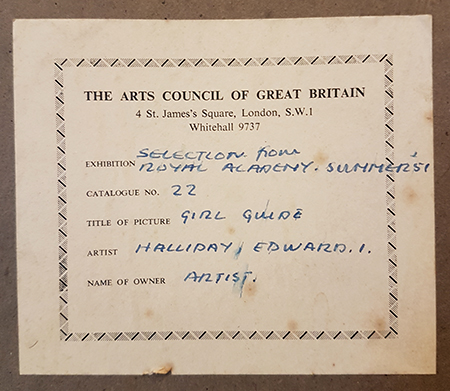 THE ARTS COUNCIL OF GREAT BRITAIN
4 St. James's Square, London, S.W.1
Whitehall 9737
EXHIBITION SELECTION from
ROYAL ACADEMY. SUMMER'51
CATALOGUE NO. 22
TITLE OF PICTURE GIRL GUIDE
ARTIST HALLIDAY, EDWARD. I.
NAME OF OWNER ARTIST.